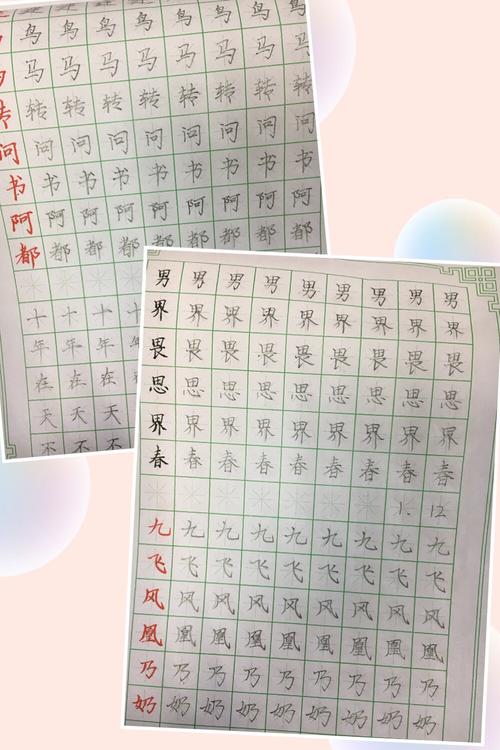 鸟 鸟 鸟 鸟 鸟 鸟 鸟 鸟
马 马 马 马 马 马 马 马
转 转 转 转 转 转 转 转 转
问 问 问 问 问 问 问 问 问
书 书 书 书 书 书 书 书 书
阿 阿 阿 阿 阿 阿 阿 阿 阿
都 都 都 都 都 都 都 都 都
十 十 十 十
年 年 年 年
在 在 在 在
天 天 天
不 不 不
男 男 男 男 男 男 男 男 男
界 界 界 界 界 界 界 界 界
畏 畏 畏 畏 畏 畏 畏 畏 畏
思 思 思 思 思 思 思 思 思
界 界 界 界 界 界 界 界 界
春 春 春 春 春 春 春 春 春
1. 12
九 九 九 九 九 九 九 九 九
飞 飞 飞 飞 飞 飞 飞 飞 飞
风 风 风 风 风 风 风 风 风
凰 凰 凰 凰 凰 凰 凰 凰 凰
乃 乃 乃 乃 乃 乃 乃 乃 乃
奶 奶 奶 奶 奶 奶 奶 奶 奶